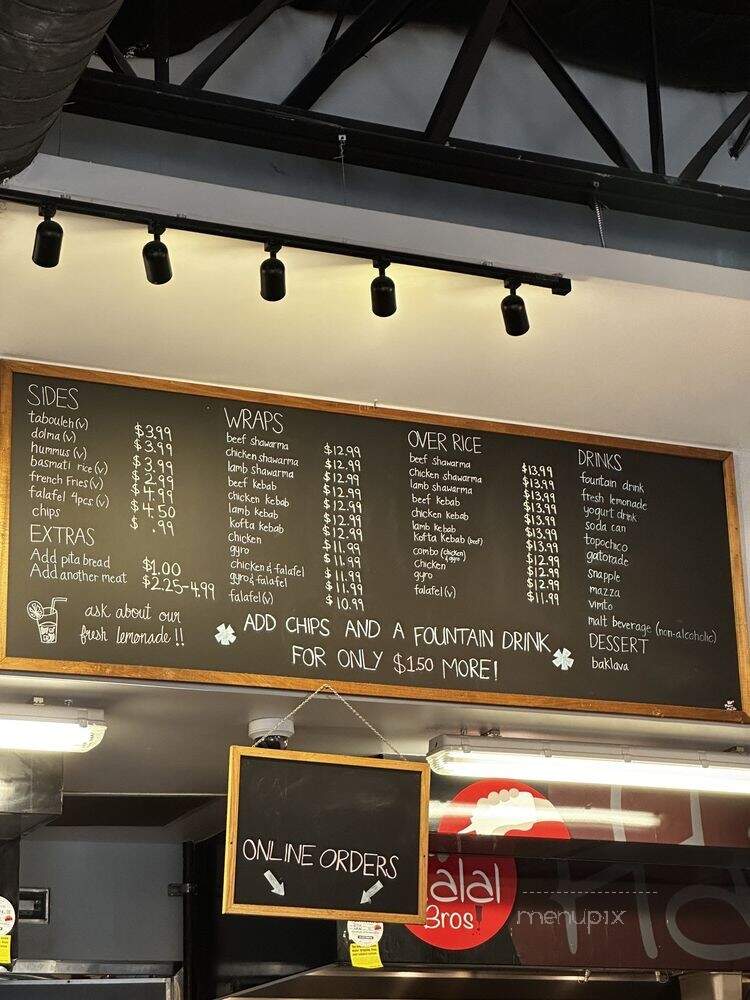 SIDES
tabouleh(v) $3.99
dolma(v) $3.99
hummus(v) $3.99
basmati rice (v) $2.99
french fries(v) $4.99
falafel 4pcs(v) $4.50
chips $.99
EXTRAS
Add pita bread $1.00
Add another meat $2.25-4.99
ask about our
fresh lemonade!!
WRAPS
beef shawarma $12.99
chicken shawarma $12.99
lamb shawarma $12.99
beef kebab $12.99
chicken kebab $12.99
lamb kebab $12.99
kofta kebab $12.99
chicken $11.99
gyro $11.99
chicken & falafel $11.99
gyro & falafel $11.99
falafel(v) $10.99
OVER RICE
beef shawarma $13.99
chicken shawarma $13.99
lamb shawarma $13.99
beef kebab $13.99
chicken kebab $13.99
lamb kebab $13.99
kofta kebab (beef) $13.99
combo (chicken & gyro) $12.99
chicken $12.99
gyro $12.99
falafel(v) $11.99
DRINKS
fountain drink
fresh lemonade
yogurt drink
soda can
topochico
gatorade
snapple
mazza
vimto
malt beverage (non-alcoholic)
DESSERT
baklava
ADD CHIPS AND A FOUNTAIN DRINK
FOR ONLY $1.50 MORE!
ONLINE ORDERS
alal
Bros
menupix